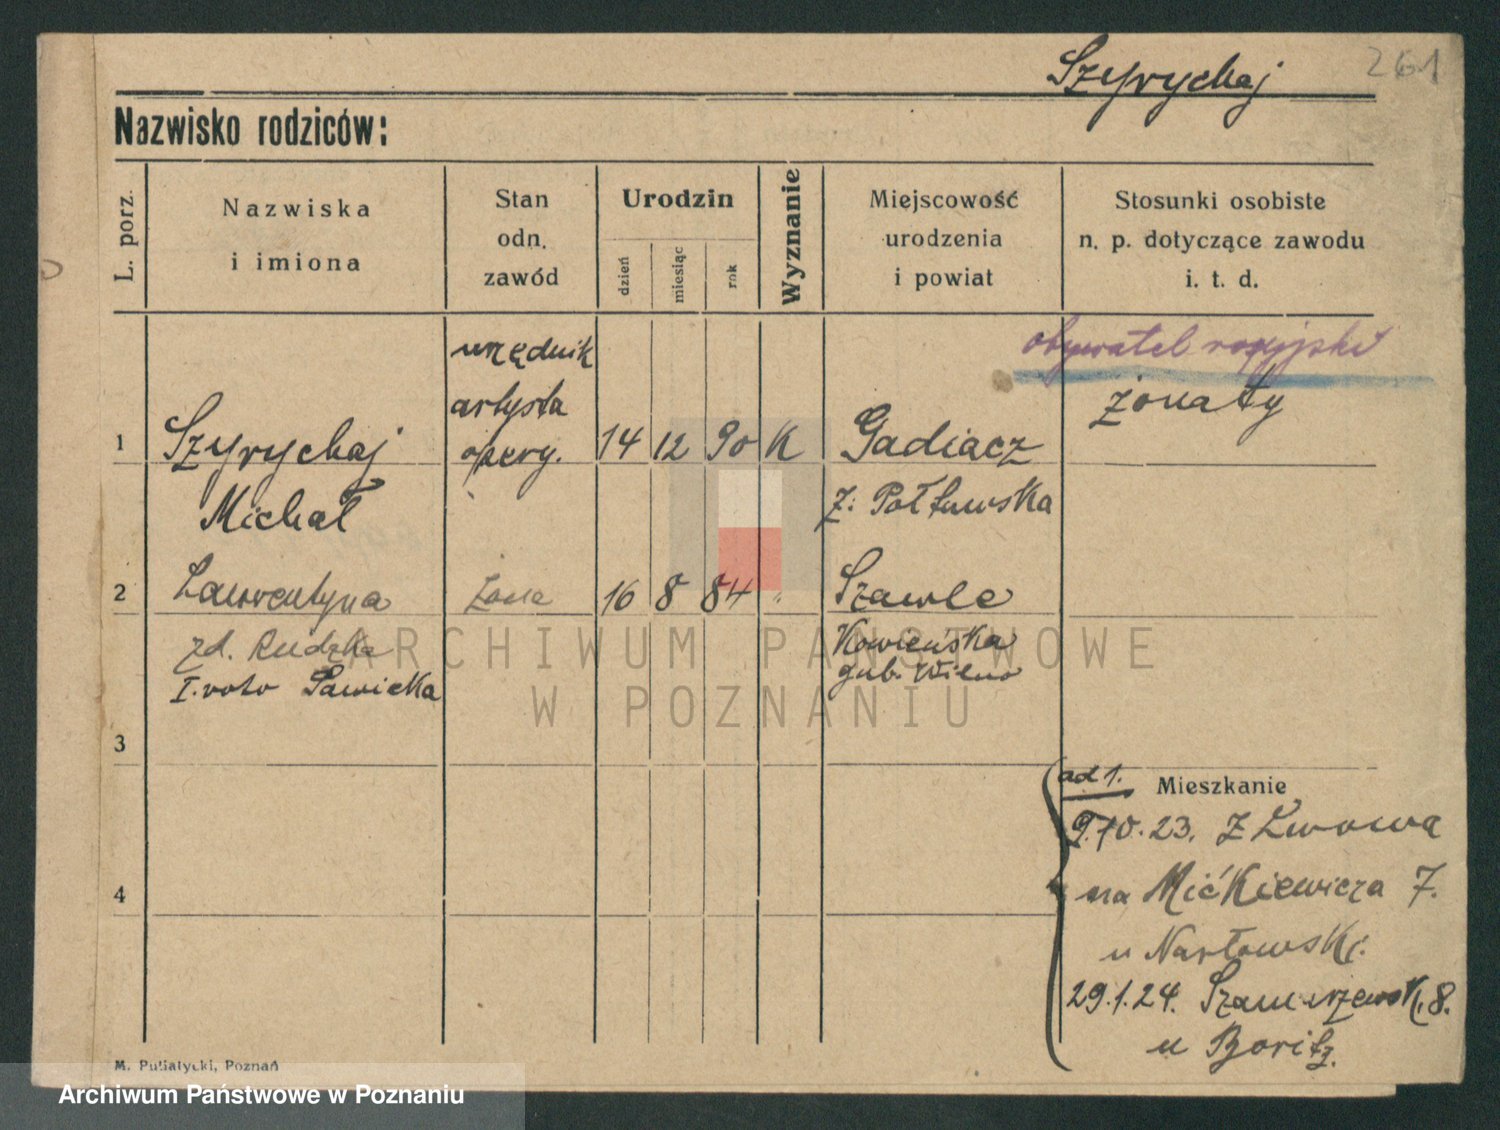 Szyrychaj 261
Nazwisko rodziców:
L. porz.
Nazwiska
i imiona
Stan
odn.
zawód
Urodzin
dzień
miesiąc
rok
Wyznanie
Miejscowość
urodzenia
i powiat
Stosunki osobiste
n. p. dotyczące zawodu
i. t. d.
obywatel rosyjski
żonaty
urzędnik
artysta
1 Szyrychaj opery. 14 12 90 K Gadiacz
Michał z. Połtawska
2 Lawrentyna żona 16 8 84 " Szawle
zd. Rudzka Kowieńska
I. voto Sawicka gub. Wilno
3
4
ad 1. Mieszkanie
9.10.23. z Lwowa
na Mićkiewicza 7.
u Narłowski.
29.1.24. Szamarzewsk. 8.
u Boritz.
M. Putiatycki, Poznań
ARCHIWUM PAŃSTWOWE
W POZNANIU
Archiwum Państwowe w Poznaniu